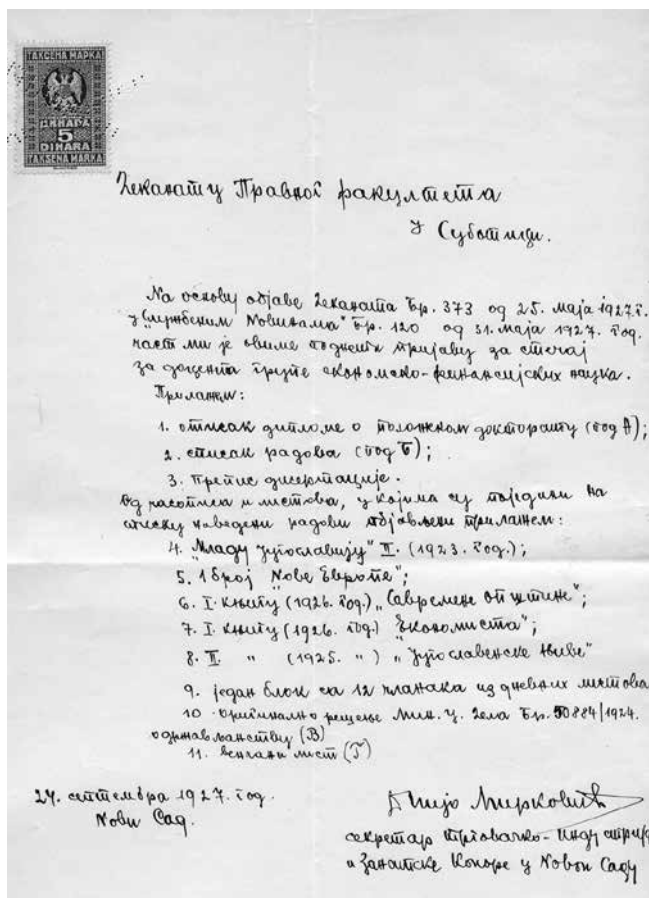 ТАКСЕНА МАРКА
ДИНАРА
5
DINARA
TAKSENA MARKA
Деканату Правног факултета
у Суботици.
На основу објаве Деканата бр. 373 од 25. маја 1927. г.
у „Службеним Новинама" бр. 120 од 31. маја 1927. год.
част ми је овиме поднети пријаву за стечај
за доцента групе економско-финансијских наука.
Прилажем:
1. отисак дипломе о положеном докторату (под А);
2. списак радова (под Б);
3. препис дисертације.
Од часописа и листова, у којима су поједини на
списку наведени радови објављени прилажем:
4. „Младу Југославију" II. (1923. год.);
5. 1 број „Нове Европе";
6. I. књигу (1926. год.) „Савремене општине";
7. I. књигу (1926. год.) „Економиста";
8. II. „ (1925. „) „Југославенске Њиве"
9. један блок са 12 чланака из дневних листова
10. Оригинално решење Мин. у. Дела Бр. 50884/1924.
о држављанству (В)
11. Венчани лист (Г)
24. септембра 1927. год.
Нови Сад.
Мијо Мирковић
секретар Трговачко-Индустријске
и Занатске Коморе у Новом Саду